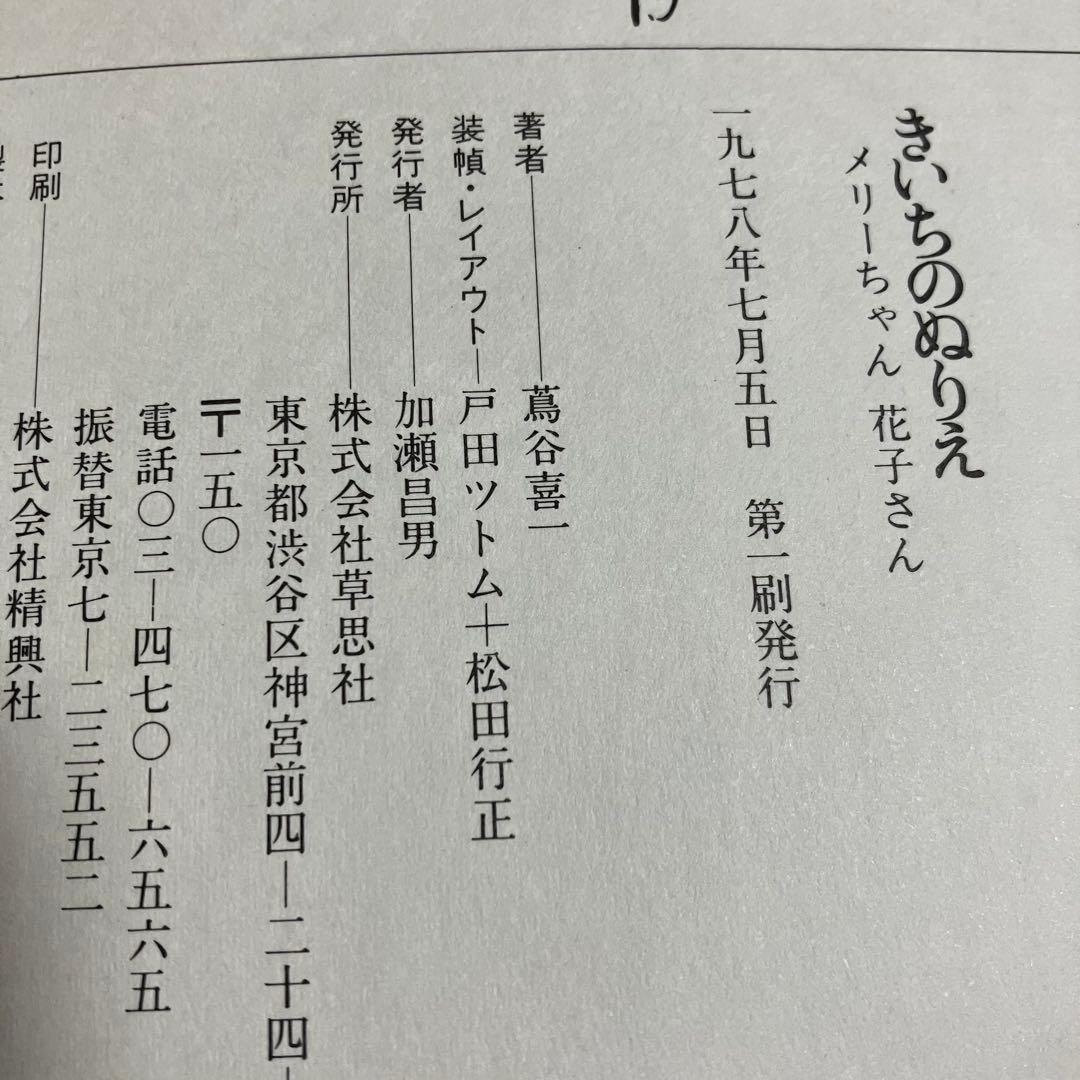 きいちのぬりえ
メリーちゃん 花子さん
一九七八年七月五日 第一刷発行
著者――蔦谷喜一
装幀・レイアウト―戸田ツトム＋松田行正
発行者――加瀬昌男
発行所――株式会社草思社
東京都渋谷区神宮前四―二十四―
〒一五〇
電話〇三―四七〇―六五六五
振替東京七―二三五五二
印刷――株式会社精興社